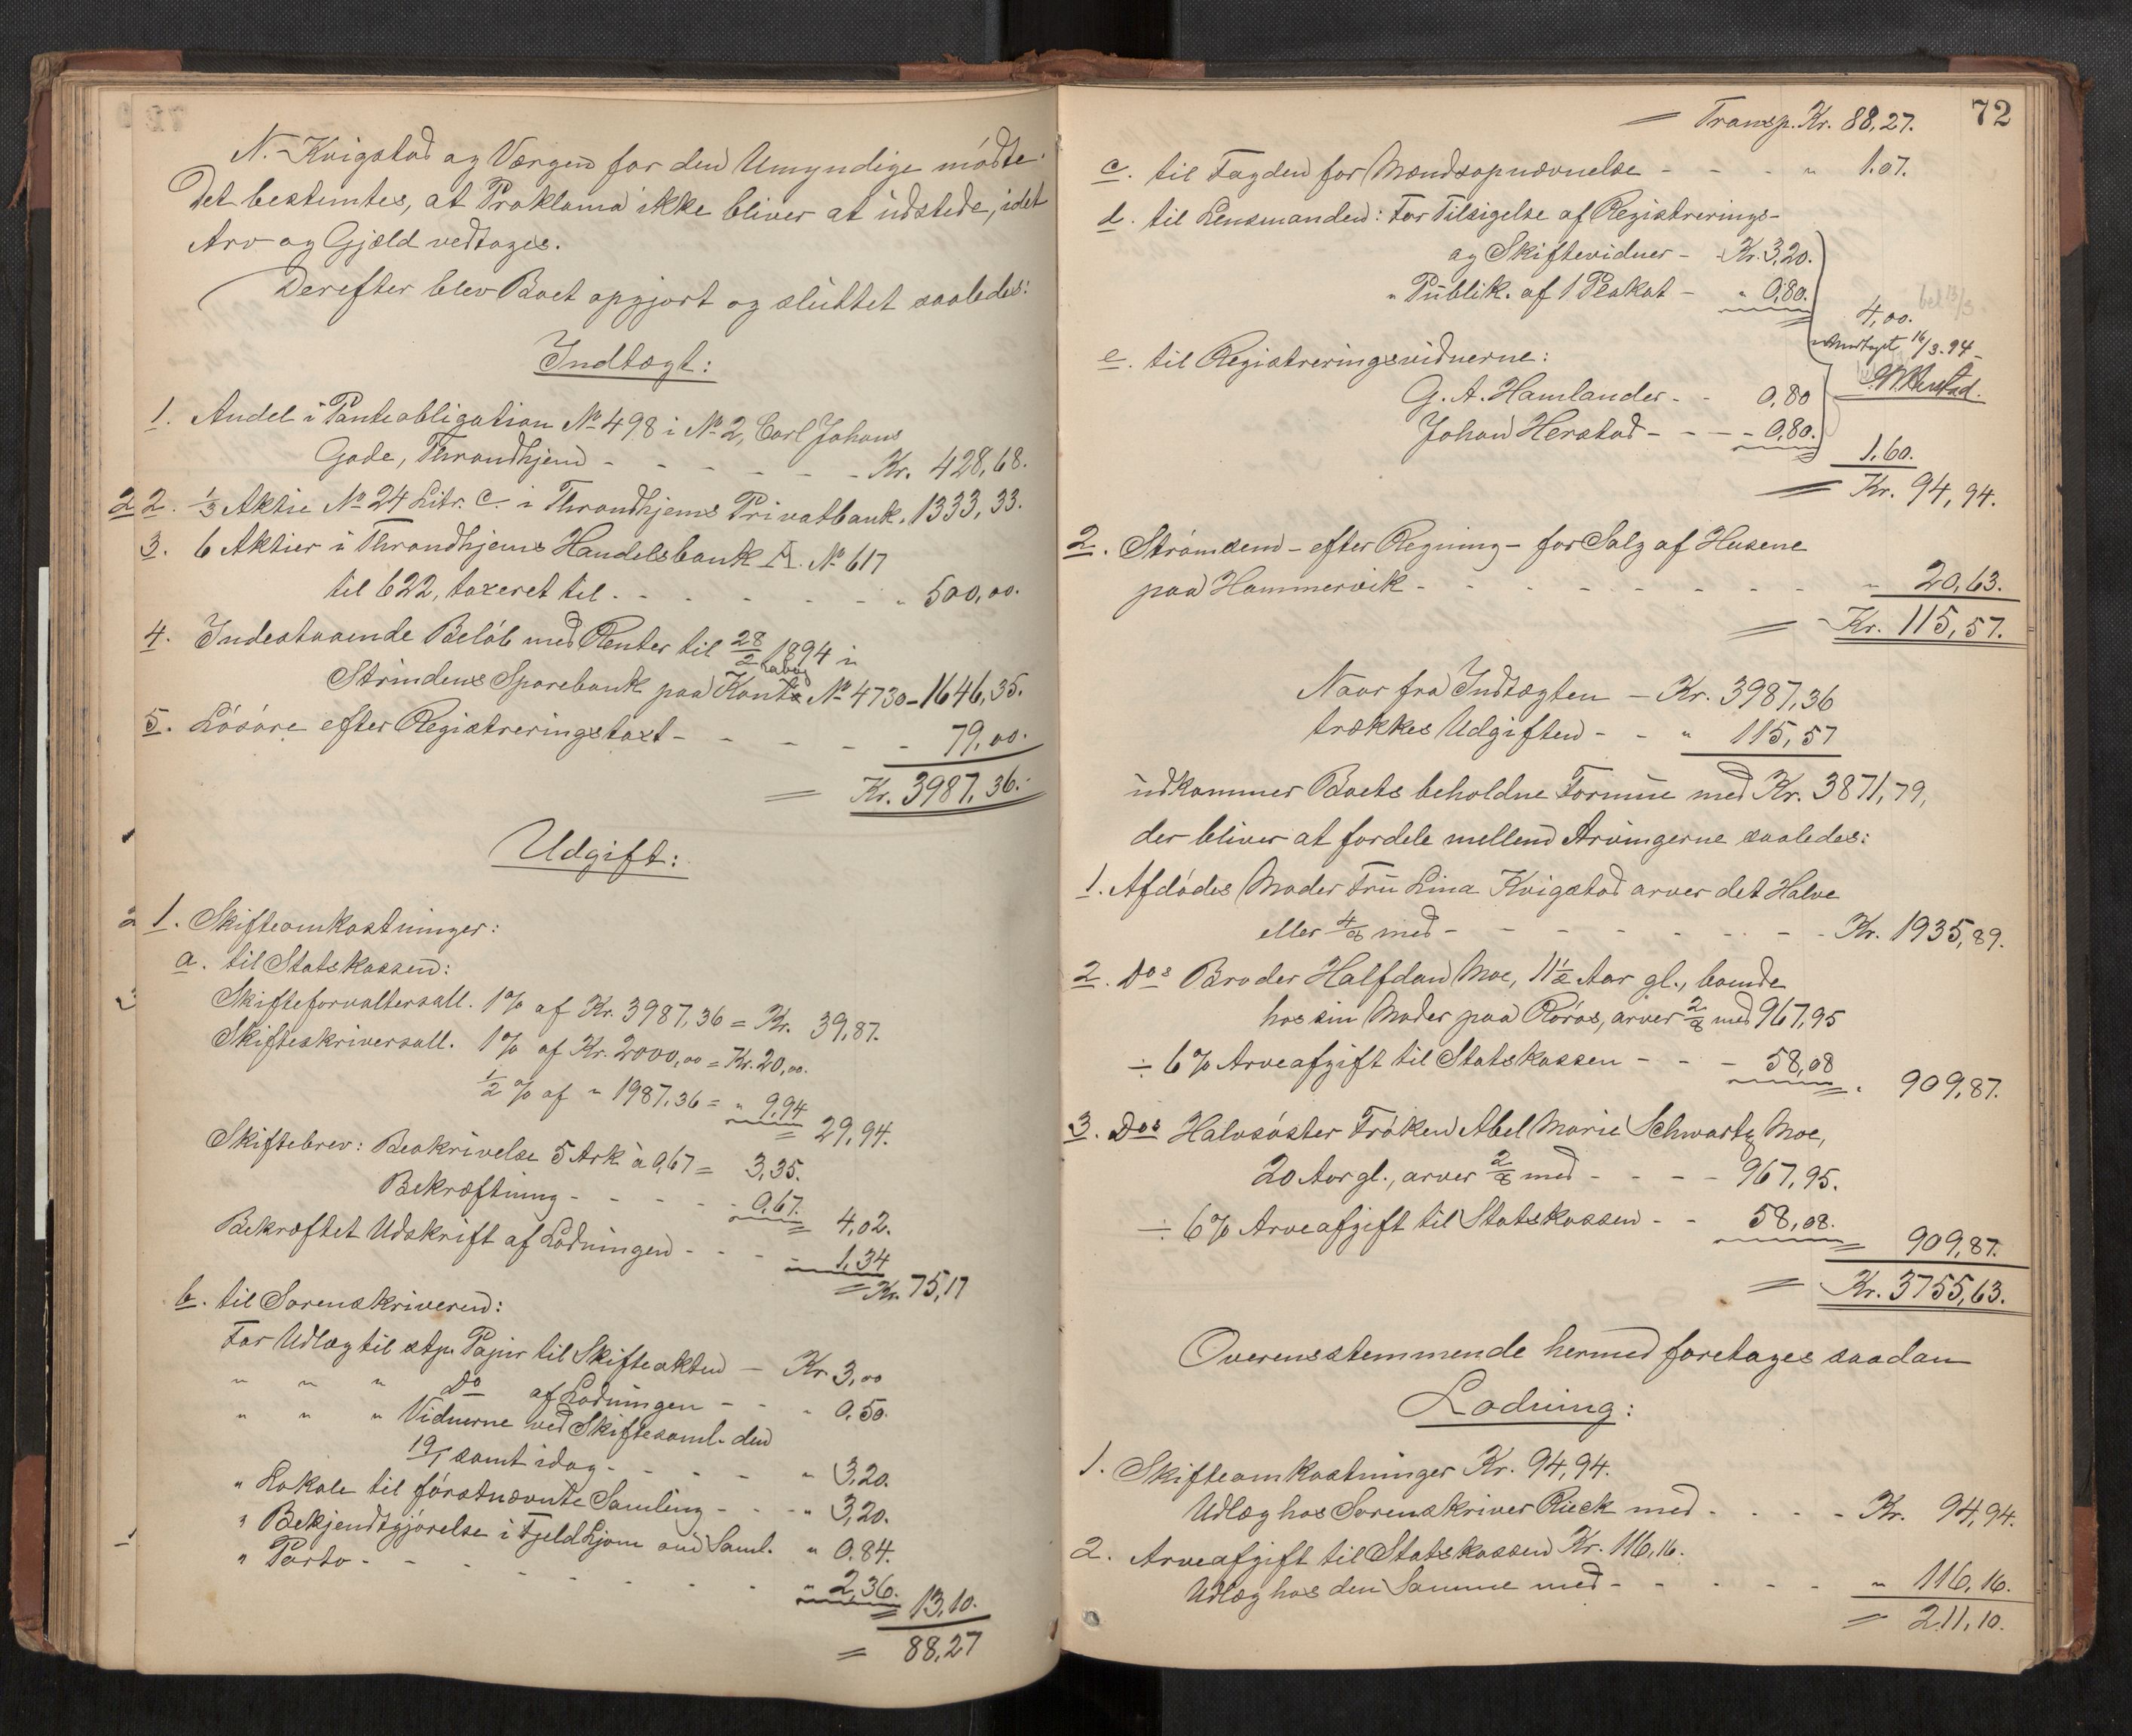 N. Kvigstad og Værgen for den Umyndige mödte.
Det bestemtes, at Proklama ikke bliver at udstede, idet
Arv og Gjæld vedtages.
Derefter blev Boet opgjort og sluttet saaledes:
Indtægt:
1. Andel i Panteobligation No 498 i No 2, Carl Johans
Gade, Throndhjem - - - - - - Kr. 428,68.
2 2. 1/3 Aktie No 24 Litr. C. i Throndhjems Privatbank " 1333,33.
3. 6 Aktier i Throndhjems Handelsbank A. No 617
til 622, taxeret til - - - - - - " 500,00.
4. Indestaaende Belöb med Renter til 28/2 1894 i
Strindens Sparebank paa Konto No 4730 - 1646,35.
5. Lösöre efter Registreringstaxt - - - - - 79,00.
= Kr. 3987,36.
Udgift:
1. Skifteomkostninger:
a. til Statskassen:
Skifteforvaltersall. 1% af Kr. 3987,36 = Kr. 39,87.
Skifteskriversall. 1% af Kr. 2000,00 = Kr. 20,00.
1/2 % af " 1987,36 = " 9,94
= 29,94.
Skiftebrev: Beskrivelse 5 Ark à 0,67 = 3,35.
Bekræftning - - - - - 0,67.
= 4,02.
Bekræftet Udskrift af Lodningen - - - - 1,34
= Kr. 75,17
b. til Sorenskriveren:
For Udlæg til stp. Papir til Skifteakten - Kr. 3,00
" " " Do af Lodningen - - " 0,50.
" " " Vidnerne ved Skiftesaml. den
19/1 samt idag - - - - " 3,20.
" Lokale til förstnævnte Samling - - - " 3,20.
" Bekjendtgjörelse i Fjeldljom om Saml. " 0,84.
" Porto - - - - - - - - " 2,36.
= 13,10.
= 88,27
72
= Transp. Kr. 88,27.
c. til Fogden for Mændsopnævnelse - - - - " 1.07.
d. til Lensmanden: For Tilsigelse af Registrerings-
og Skiftevidner - - Kr. 3,20.
" Publik. af 1 Plakat - " 0,80.
4,00.
bet 13/3.
Modtaget 16/3.94
e. til Registreringsvidnerne:
G. A. Hamlander - - 0,80
Johan Herstad - - - - 0,80.
1,60.
= Kr. 94,94.
2. Strömsem - efter Regning - for Salg af Husene
paa Hammervik - - - - - - - - " 20,63.
= Kr. 115,57.
Naar fra Indtægten - Kr. 3987,36
trækkes Udgiften - - " 115,57
udkommer Boets beholdne Formue med Kr. 3871,79,
der bliver at fordele mellem Arvingerne saaledes:
1. Afdödes Moder Fru Lina Kvigstad arver det Halve
eller 4/8 med - - - - - - - - - Kr. 1935,89.
2. Dos Broder Halfdan Moe, 11 1/2 Aar gl., boende
hos sin Moder paa Röros, arver 2/8 med 967,95
÷ 6% Arveafgift til Statskassen - - - 58,08
= " 909,87.
3. Dos Halvsöster Fröken Abel Marie Schwartz Moe,
20 Aar gl., arver 2/8 med - - - - 967,95.
÷ 6% Arveafgift til Statskassen - - 58,08.
= 909,87.
= Kr. 3755,63.
Overensstemmende hermed foretages saadan
Lodning:
1. Skifteomkostninger Kr. 94,94.
Udlæg hos Sorenskriver Rieck med - - - - Kr. 94,94.
2. Arveafgift til Statskassen Kr. 116,16.
Udlæg hos den Samme med - - - - - " 116,16.
= 211,10.